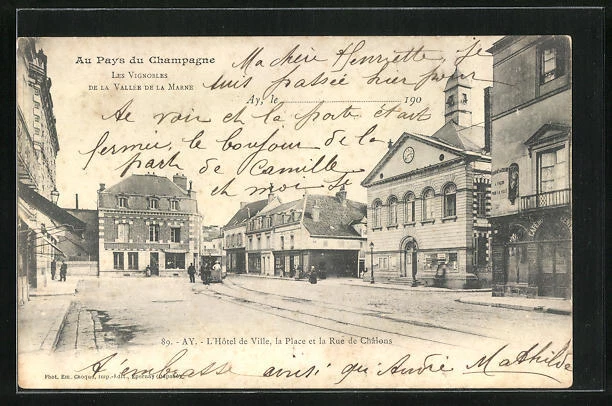 Au Pays du Champagne
Les Vignobles
de la Vallée de la Marne
Ma chère Henriette, Je
suis passée hier pour
Ay, le 190
te voir et la porte était
fermée, le bonjour de la
part de Camille
et moi
89. - AY. - L'Hôtel de Ville, la Place et la Rue de Châlons
t'embrasse ainsi qu'André Mathilde
Phot. Em. Choque, Imp.-Édit., Épernay